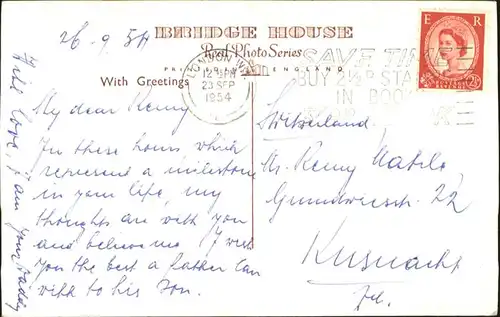 BRIDGE HOUSE
Real Photo Series
With Greetings
26.9.54
LONDON
12 15 PM
23 SEP
1954
SAVE TIME
BUY 2½D STAMPS
IN BOOKS
E R
2½
My dear Remy
In these hours which
represent a milestone
in your life, my
thoughts are with you
and believe me I wish
you the best a father can
wish to his son.
With love, I am your Daddy
Switzerland,
Mr. Remy
22
Kusnacht